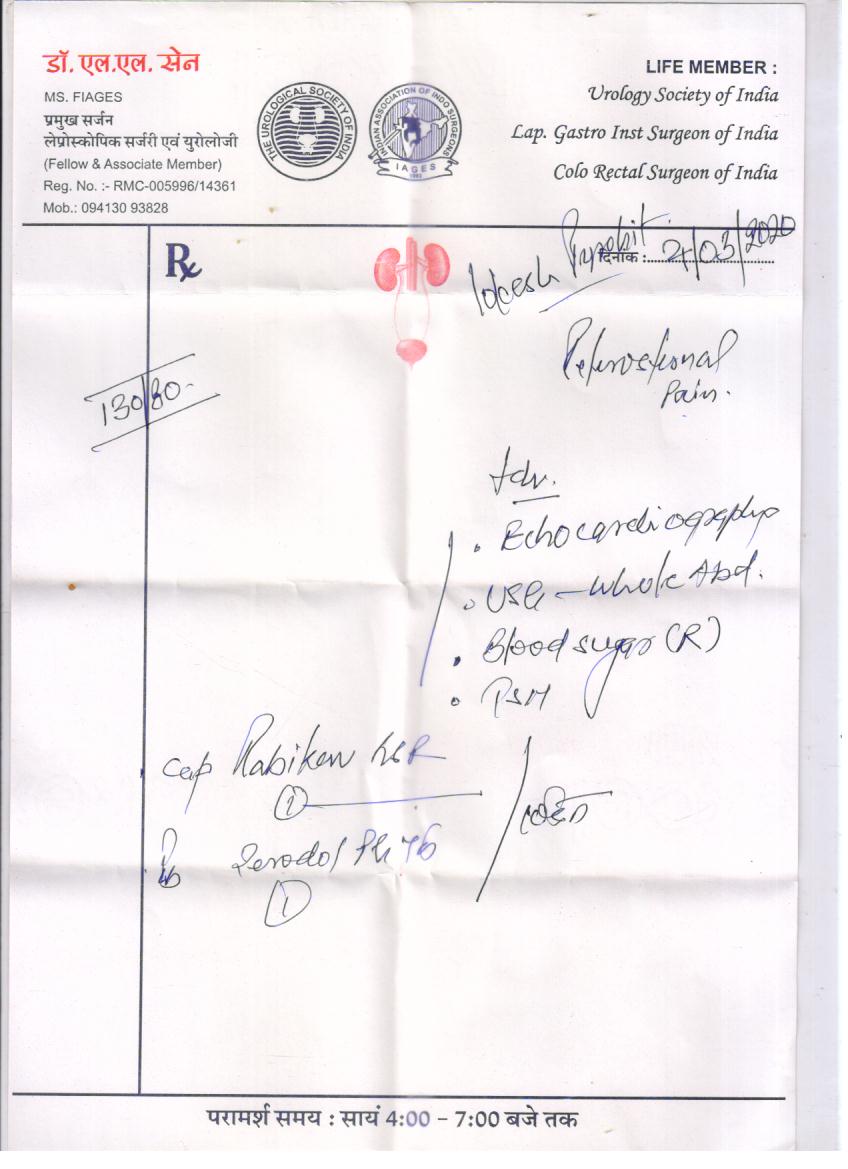 डॉ. एल.एल. सेन
MS. FIAGES
प्रमुख सर्जन
लेप्रोस्कोपिक सर्जरी एवं युरोलोजी
(Fellow & Associate Member)
Reg. No. :- RMC-005996/14361
Mob.: 094130 93828
THE UROLOGICAL SOCIETY OF INDIA
INDIAN ASSOCIATION OF
SURGEONS
IAGES
LIFE MEMBER :
Urology Society of India
Lap. Gastro Inst Surgeon of India
Colo Rectal Surgeon of India
Rx
दिनांक : /03/2020
Pain.
130/80
Adv.
• Echocardiography
• USG - Whole Abd.
• Blood sugar (R)
•
Cap
①
①
परामर्श समय : सायं 4:00 - 7:00 बजे तक